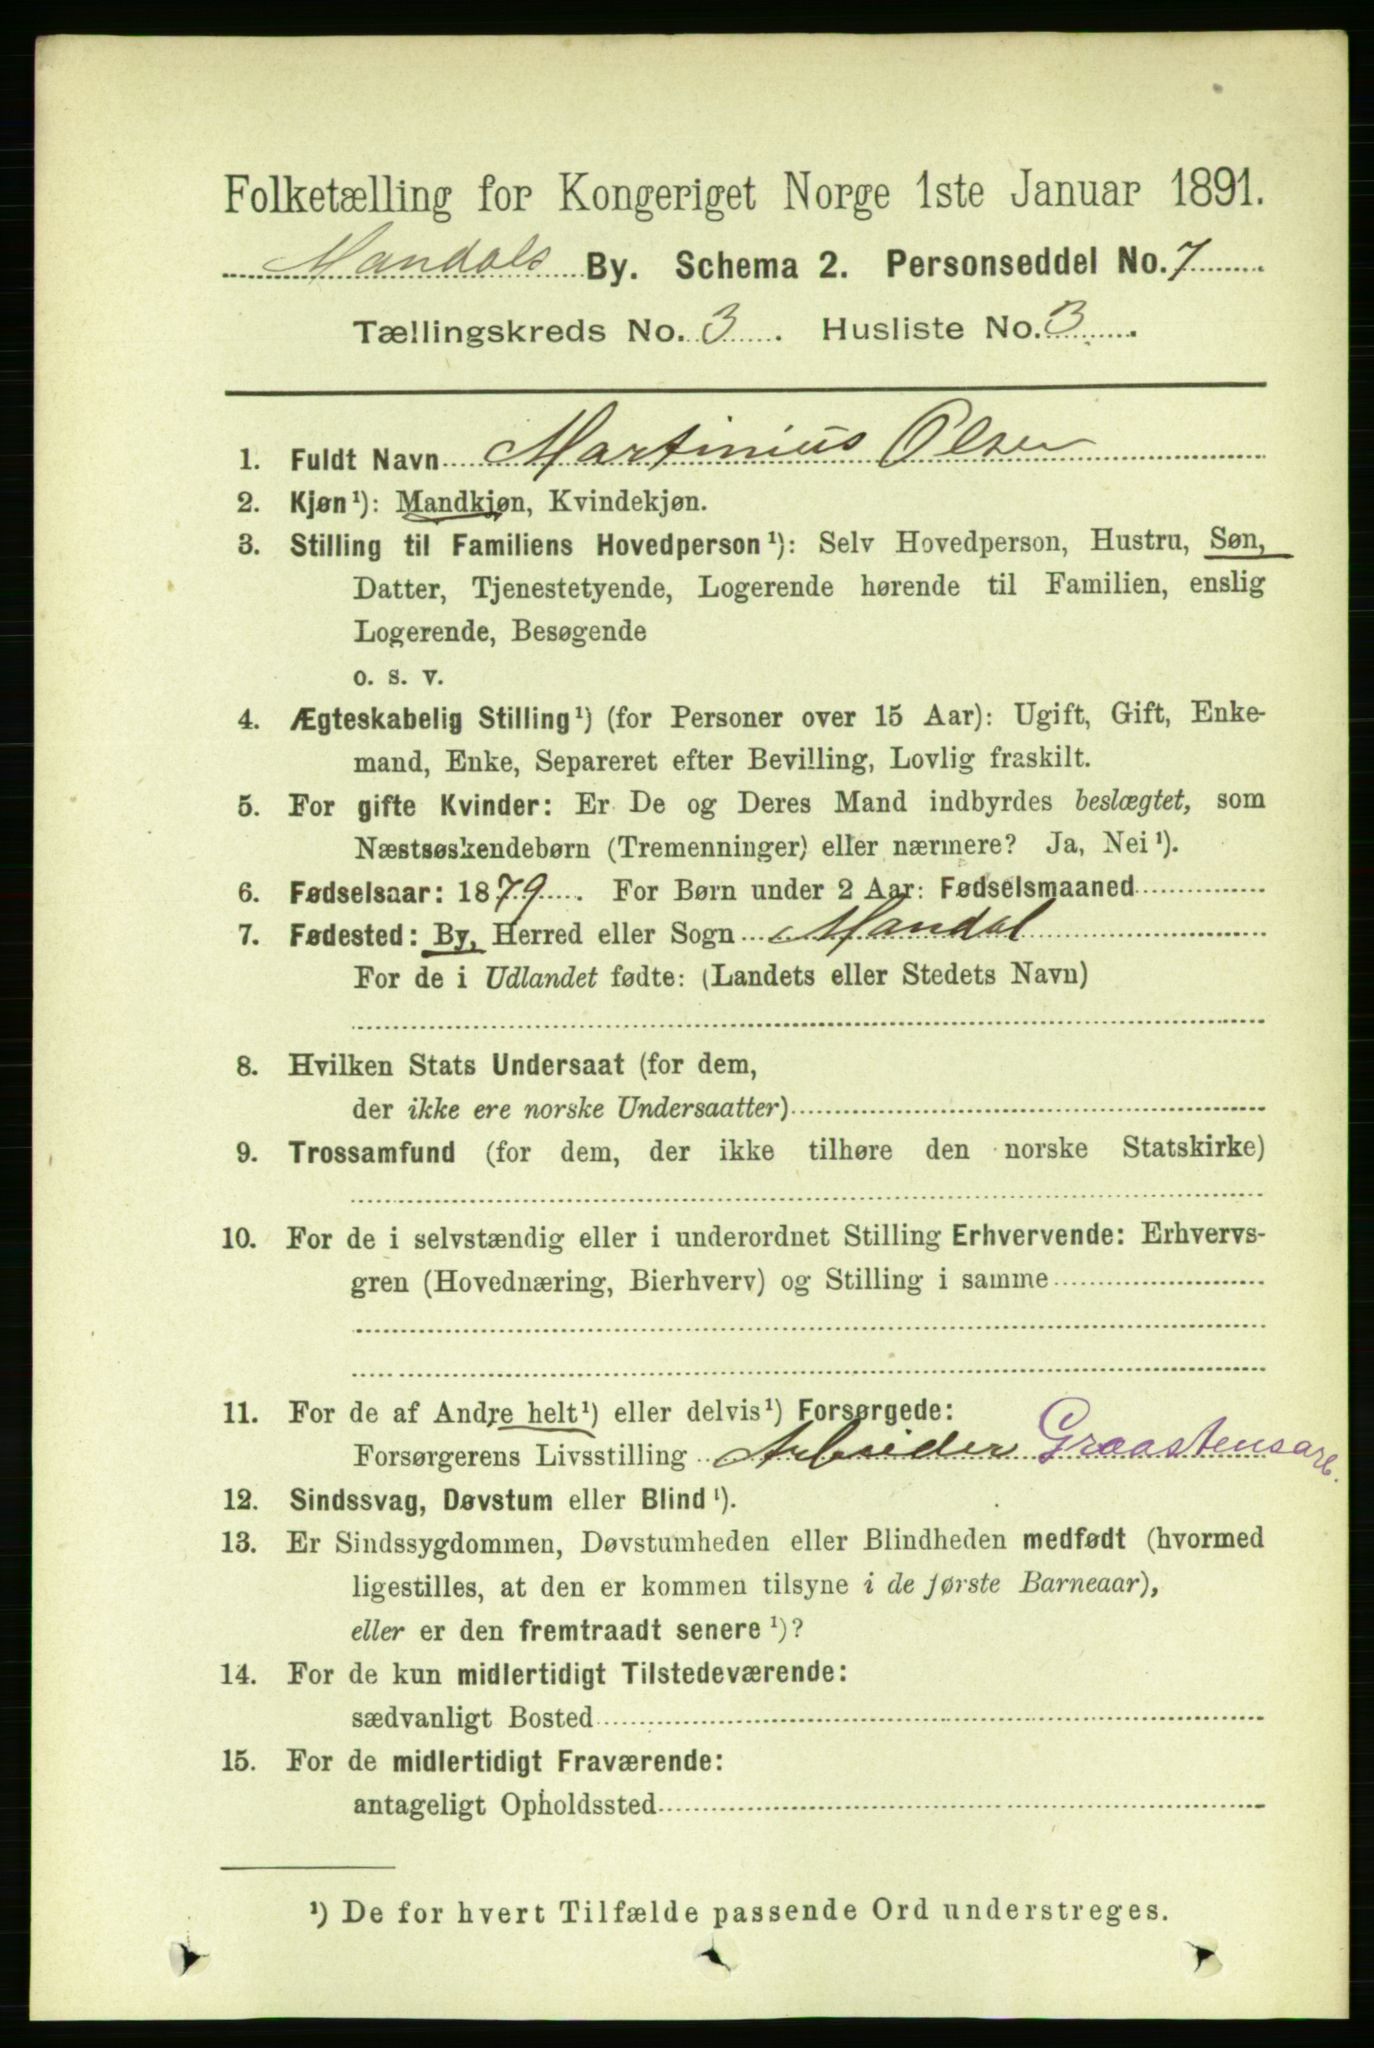 Folketælling for Kongeriget Norge 1ste Januar 1891.
Mandals By. Schema 2. Personseddel No. 7
Tællingskreds No. 3. Husliste No. 3.
1. Fuldt Navn Martinius Olsen
2. Kjøn¹): Mandkjøn, Kvindekjøn.
3. Stilling til Familiens Hovedperson¹): Selv Hovedperson, Hustru, Søn,
Datter, Tjenestetyende, Logerende hørende til Familien, enslig
Logerende, Besøgende
o. s. v.
4. Ægteskabelig Stilling¹) (for Personer over 15 Aar): Ugift, Gift, Enke-
mand, Enke, Separeret efter Bevilling, Lovlig fraskilt.
5. For gifte Kvinder: Er De og Deres Mand indbyrdes beslægtet, som
Næstsøskendebørn (Tremenninger) eller nærmere? Ja, Nei¹).
6. Fødselsaar: 1879. For Børn under 2 Aar: Fødselsmaaned
7. Fødested: By, Herred eller Sogn Mandal
For de i Udlandet fødte: (Landets eller Stedets Navn)
8. Hvilken Stats Undersaat (for dem,
der ikke ere norske Undersaatter)
9. Trossamfund (for dem, der ikke tilhøre den norske Statskirke)
10. For de i selvstændig eller i underordnet Stilling Erhvervende: Erhvervs-
gren (Hovednæring, Bierhverv) og Stilling i samme
11. For de af Andre helt¹) eller delvis¹) Forsørgede:
Forsørgerens Livsstilling Arbeider Graastensarb.
12. Sindssvag, Døvstum eller Blind¹).
13. Er Sindssygdommen, Døvstumheden eller Blindheden medfødt (hvormed
ligestilles, at den er kommen tilsyne i de første Barneaar),
eller er den fremtraadt senere¹)?
14. For de kun midlertidigt Tilstedeværende:
sædvanligt Bosted
15. For de midlertidigt Fraværende:
antageligt Opholdssted
¹) De for hvert Tilfælde passende Ord understreges.